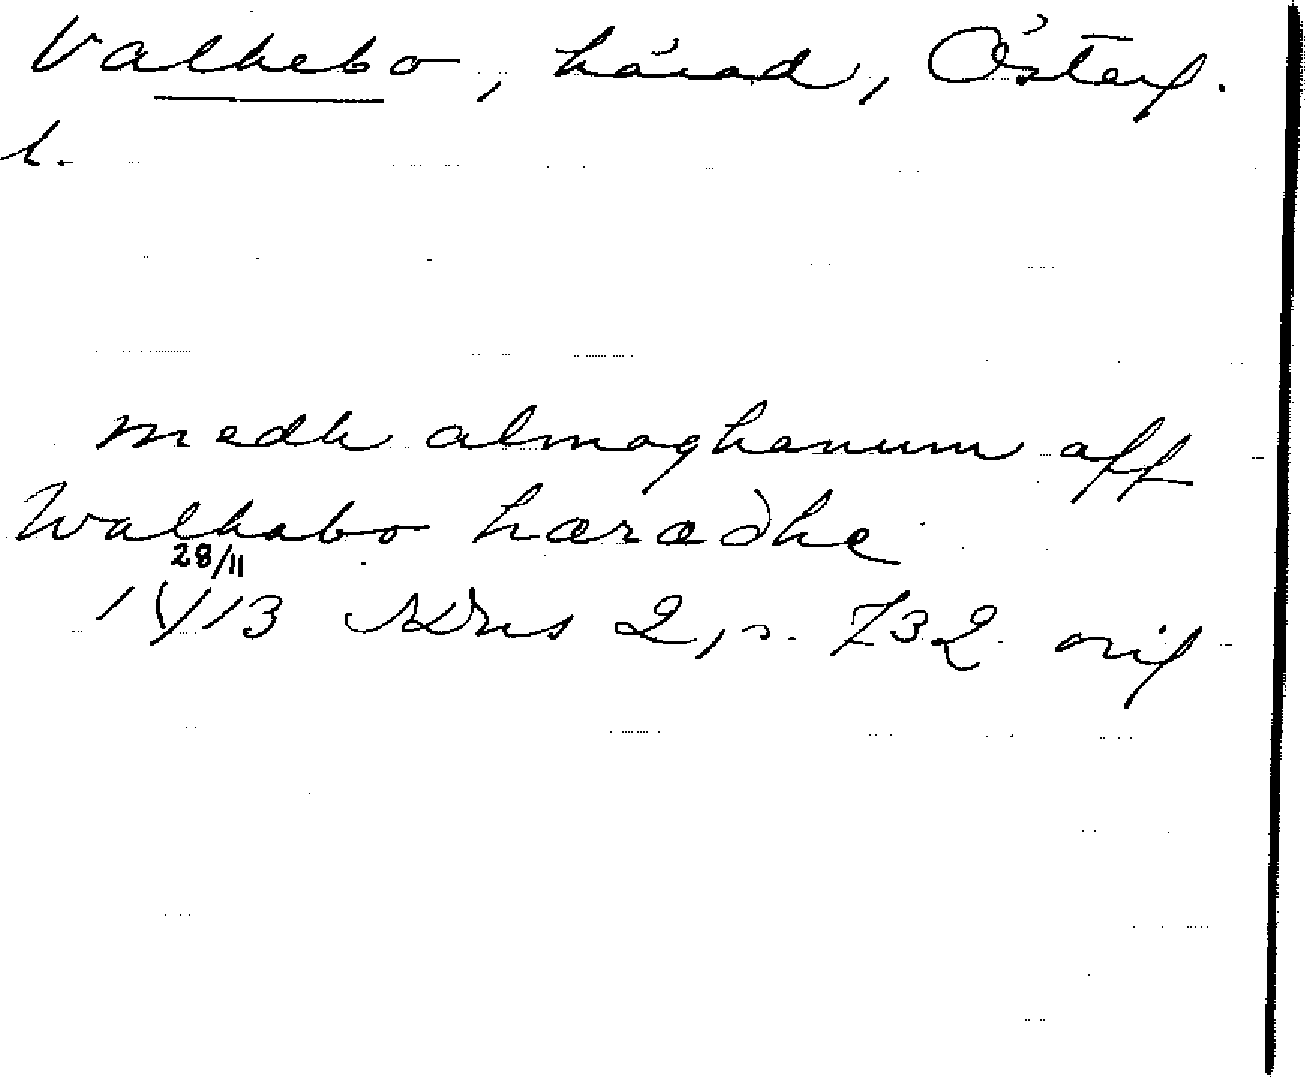 Valkebo, härad, Österg.
l.
medh almoghanum aff
Walkabo hæradhe
28/11
1413 SRNS 2, s. 732 orig